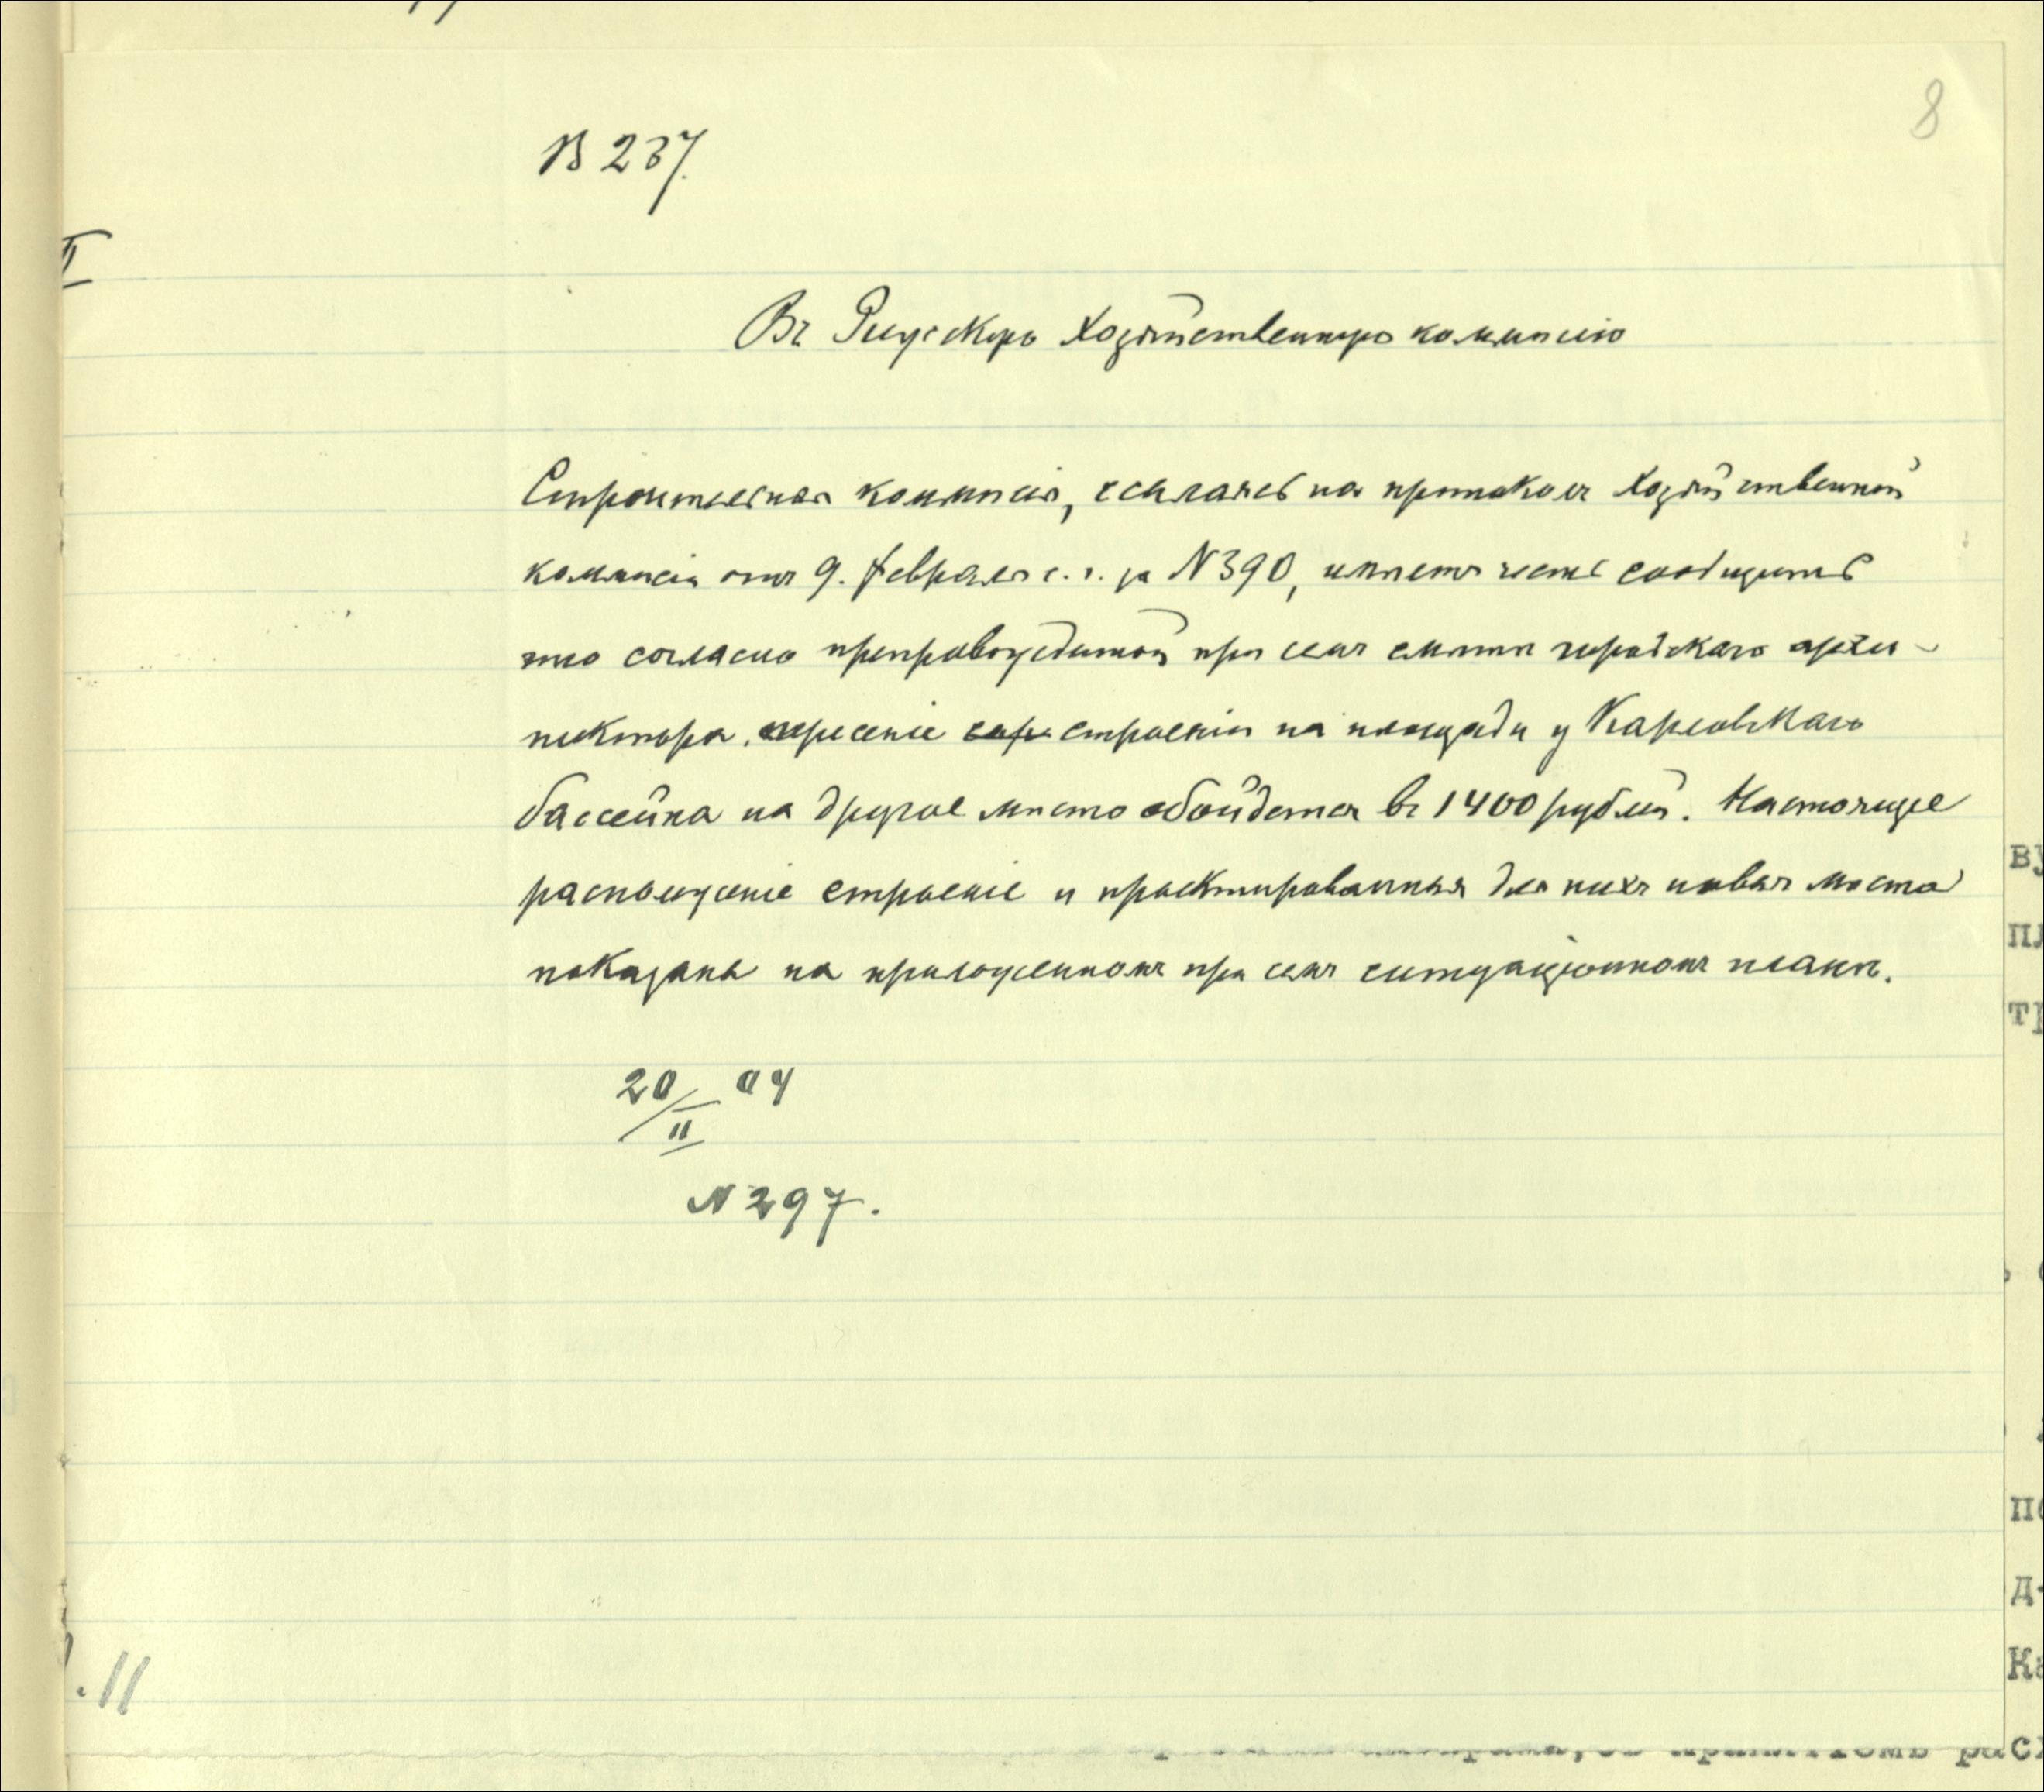 8
В 237.
Въ Рижскую Хозяйственную коммисiю
Строительная коммисiя, ссылаясь на протоколъ Хозяйственной
коммисiи отъ 9. февраля с. г. за N 390, имѣетъ честь сообщить
что согласно препровождаемой при семъ смѣты городскаго архи-
тектора, строенiя на площади у Карловскаго
бассейна на другое мѣсто обойдется въ 1400 рублей. Настоящее
расположенiе строенiе и проектированныя для нихъ новыя мѣста
показаны на приложенномъ при семъ ситуацiонномъ планѣ.
20/II 04
N 297.
. 11